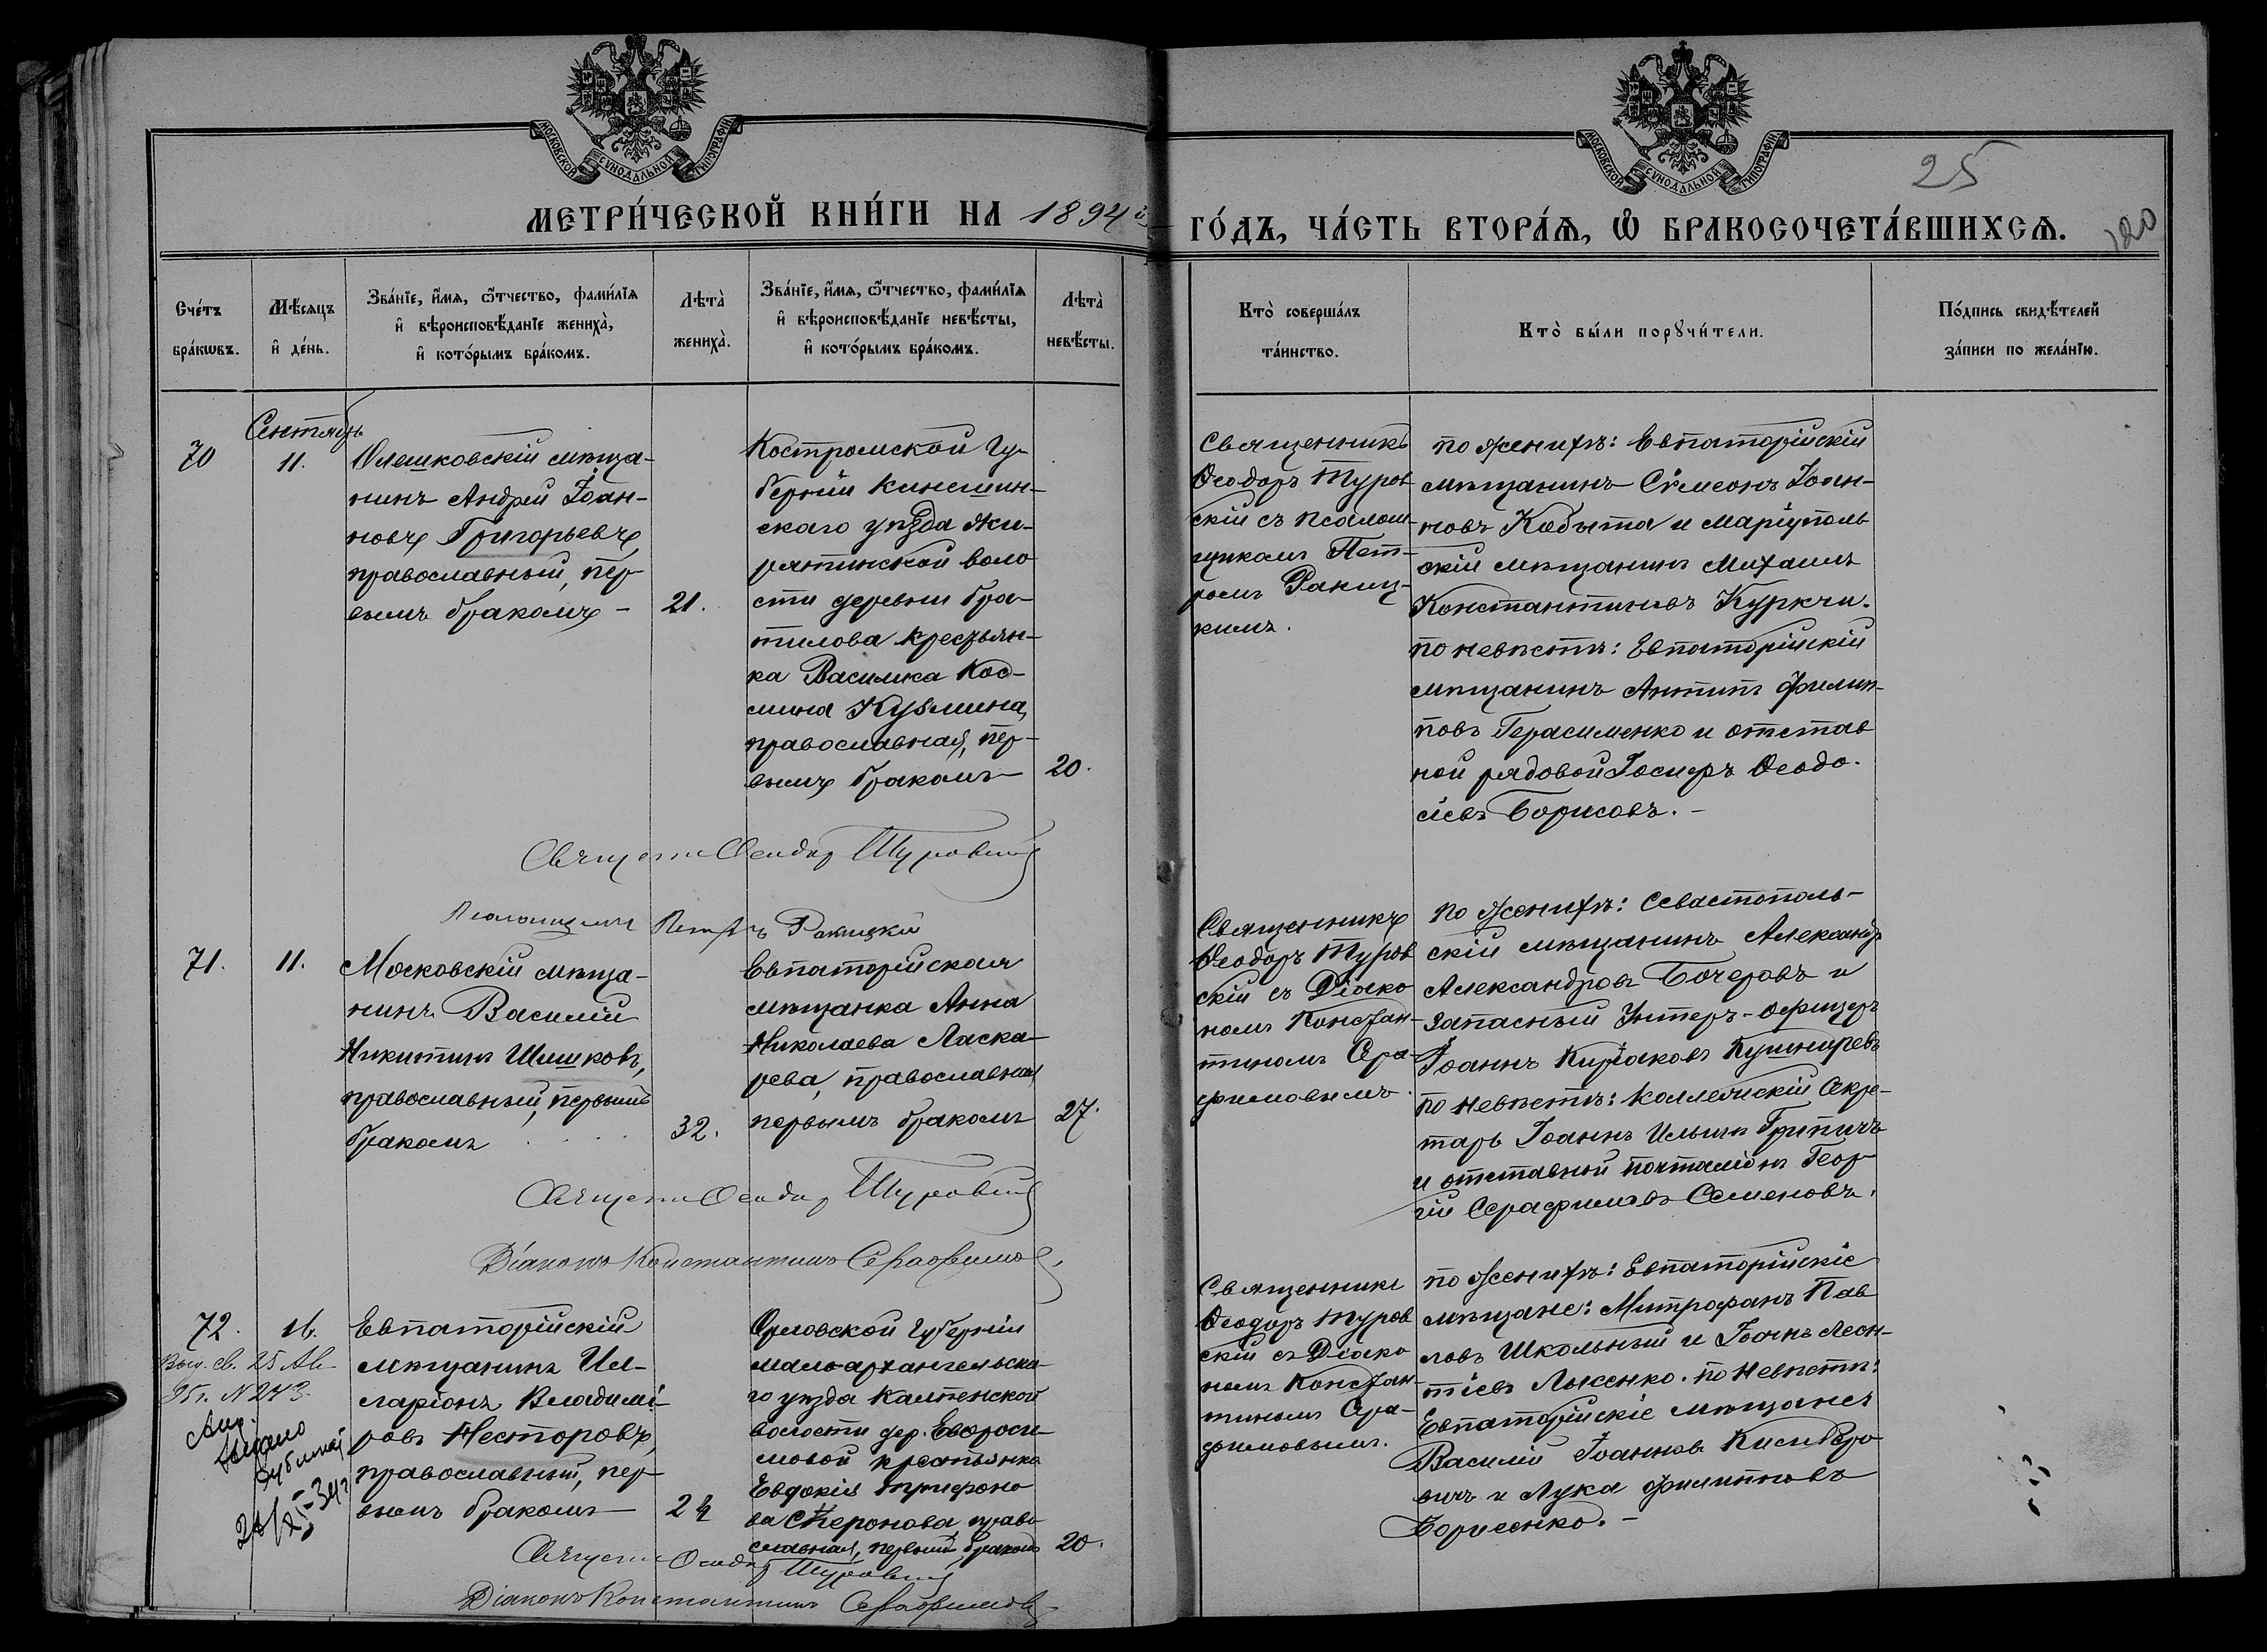 МОСКОВСКОЙ СѴНОДАЛЬНОЙ ТИПОГРАФІИ
МОСКОВСКОЙ СѴНОДАЛЬНОЙ ТИПОГРАФІИ
25
120
МЕТРИ́ЧЕСКОЙ КНИ́ГИ НА 1894й ГО́ДЪ, ЧА́СТЬ ВТОРА́Я, Ѽ БРАКОСОЧЕТА́ВШИХСЯ.
Сче́тъ
бра́кѡвъ.
Мѣ́сяцъ
и҆ де́нь.
Зва́нїе, и҆́мя, ѻ҆́тчество, фами́лїя
и҆ вѣроисповѣ́данїе жениха̀,
и҆ кото́рымъ бра́комъ.
Лѣта̀
жениха̀.
Зва́нїе, и҆́мя, ѻ҆́тчество, фами́лїя
и҆ вѣроисповѣ́данїе невѣ́сты,
и҆ кото́рымъ бра́комъ.
Лѣта̀
невѣ́сты.
Кто̀ соверша́лъ
та́инство.
Кто̀ бы́ли порꙋчи́тели.
По́дпись свидѣ́телей
за́писи по жела́нїю.
Сентябрь
70
11.
Олешковскій мѣща-
нинъ Андрей Іоан-
новъ Григорьевъ,
православный, пер-
вымъ бракомъ –
21.
Костромской Гу-
берніи Кинешин-
скаго уѣзда Жи-
рятинской воло
сти деревни Бра-
тилова крестьян-
ка Василиса Кос-
мина Кузмина,
православная, пер-
вымъ бракомъ
20.
Священникъ
Ѳеодоръ Туров
скій съ псалом-
щикомъ Пет-
ромъ Ракиц-
кимъ.
по женихѣ: Евпаторійскій
мѣщанинъ Сѵмеонъ Іоан-
новъ Кобыта и маріуполь
скій мѣщанинъ Михаилъ
Константиновъ Куркчи.
по невѣстѣ: Евпаторійскій
мѣщанинъ Антипъ Филип-
повъ Герасименко и отстав
ной рядовой Іосифъ Ѳеодо-
сіевъ Борисовъ. –
Священн Ѳеодоръ Туровскій
Псаломщикъ Петръ Ракицкій
71.
11.
Московскій мѣща-
нинъ Василій
Никитинъ Шишковъ,
православный, первымъ
бракомъ
32.
Евпаторійская
мѣщанка Анна
Николаева Ласка-
рева, православная
первымъ бракомъ
27.
Священникъ
Ѳеодоръ Туров
скій съ Діако
номъ Констан-
тиномъ Сера-
фимовымъ.
по женихѣ: Севастополь-
скій мѣщанинъ Александръ
Александровъ Бочеровъ и
запасный Унтеръ-офицеръ
Іоаннъ Киріаковъ Кушнаревъ
по невѣстѣ: Коллежскій Секре-
тарь Іоаннъ Ильинъ Грипичъ
и отставной почталіонъ Геор-
гій Серафимовъ Семеновъ.
Священн Ѳеодоръ Туровскій
Діаконъ Константинъ Серафимовъ
72.
16.
Выд. св. 25 Ав
95 г. N 273.
Евпаторійскій
мѣщанинъ Ил-
ларіонъ Владимі-
ровъ Несторовъ,
православный, пер-
вымъ бракомъ
24
Орловской губерніи
Малоархангельска-
го уѣзда Калпенской
волости дер. Евфроси-
мовой крестьянка
Евдокія Трифоно
ва православная, первымъ бракомъ
20.
Священникъ
Ѳеодоръ Туров
скій съ Діако
номъ Констан-
тиномъ Сера-
фимовымъ.
по женихѣ: Евпаторійскіе
мѣщане: Митрофанъ Пав
ловъ Школьный и Іоаннъ Леон-
тіевъ Лысенко. по Невѣстѣ:
Евпаторійскіе мѣщане
Василій Іоанновъ
и Лука Филипповъ
Борисенко. –
Священн Ѳеодоръ Туровскій
Діаконъ Константинъ Серафимовъ